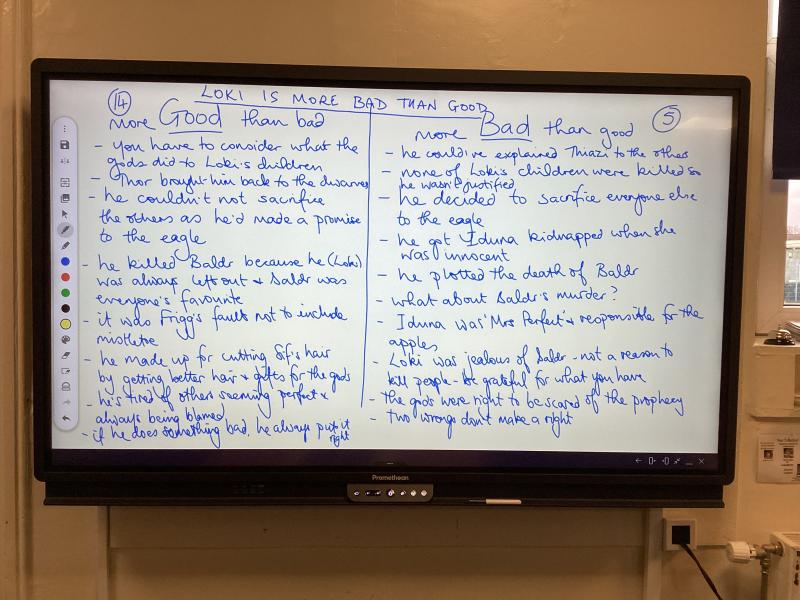 LOKI IS MORE BAD THAN GOOD
14
more Good than bad
- you have to consider what the
gods did to Loki's children
- Thor brought him back to the dwarves
- he couldn't not sacrifice
the others as he'd made a promise
to the eagle
- he killed Baldr because he (Loki)
was always left out & Baldr was
everyone's favourite
- it was Frigg's fault not to include
mistletoe
- he made up for cutting Sif's hair
by getting better hair & gifts for the gods
- he's tired of others seeming perfect &
always being blamed
- if he does something bad, he always puts it
right
5
more Bad than good
- he could've explained Thiazi to the others
- none of Loki's children were killed so
he wasn't justified
- he decided to sacrifice everyone else
to the eagle
- he got Iduna kidnapped when she
was innocent
- he plotted the death of Baldr
- what about Baldr's murder?
- Iduna was 'Mrs Perfect' & responsible for the
apples
- Loki was jealous of Baldr - not a reason to
kill people - be grateful for what you have
- the gods were right to be scared of the prophecy
- two wrongs don't make a right
Promethean